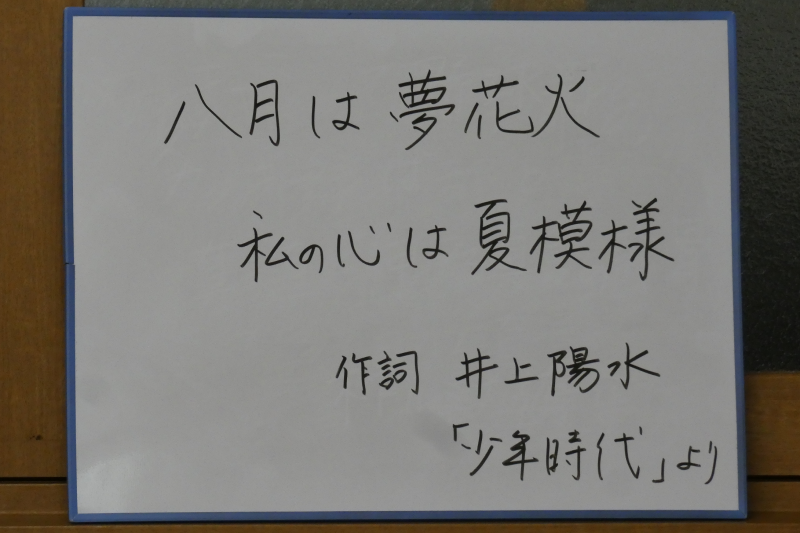 八月は夢花火
私の心は夏模様
作詞 井上陽水
「少年時代」より